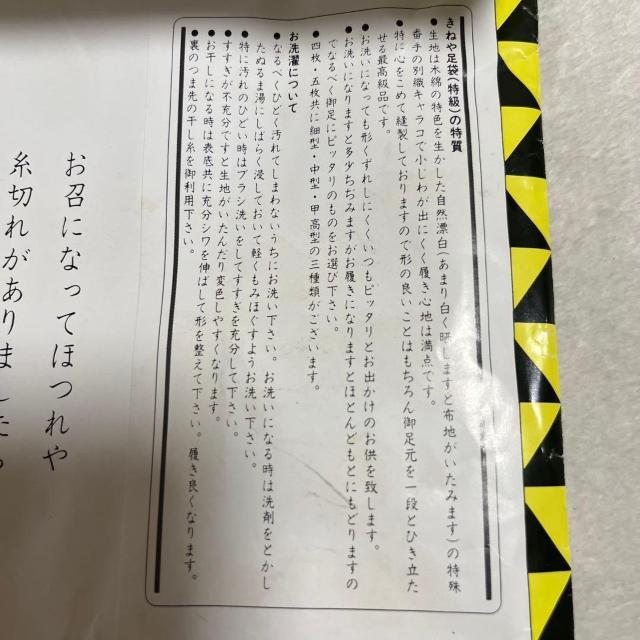 きねや足袋(特級)の特質
●生地は木綿の特色を生かした自然漂白(あまり白く晒しますと布地がいたみます)の特殊
番手の別織キャラコで小じわが出にくく履き心地は満点です。
●特に心をこめて縫製しておりますので形の良いことはもちろん御足元を一段とひき立た
せる最高級品です。
●お洗いになっても形くずれしにくくいつもピッタリとお出かけのお供を致します。
●お洗いになりますと多少ちぢみますがお履きになりますとほとんどもとにもどりますの
でなるべく御足にピッタリのものをお選び下さい。
●四枚・五枚共に細型・中型・甲高型の三種類がございます。
お洗濯について
●なるべくひどく汚れてしまわないうちにお洗い下さい。お洗いになる時は洗剤をとかし
たぬるま湯にしばらく浸しておいて軽くもみほぐすようお洗い下さい。
●特に汚れのひどい時はブラシ洗いをしてすすぎを充分して下さい。
●すすぎが不充分ですと生地がいたんだり変色しやすくなります。
●お干しになる時は表底共に充分シワを伸ばして形を整えて下さい。履き良くなります。
●裏のつま先の干し糸を御利用下さい。
お召になってほつれや
糸切れがありましたら